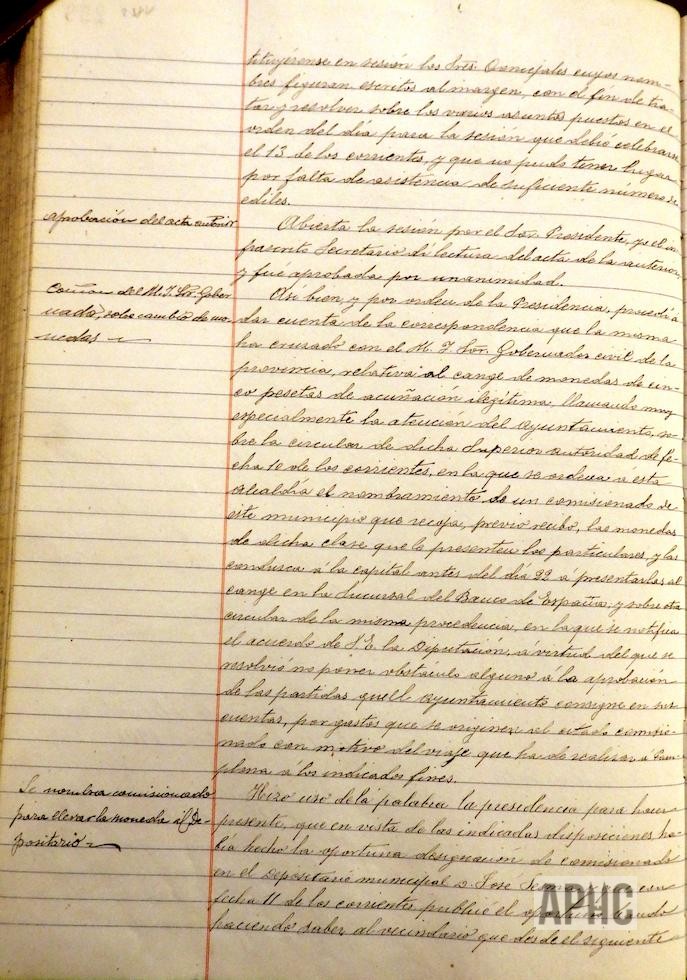 tituyéronse en sesión los Sres. Concejales cuyos nom-
bres figuran escritos al margen, con el fin de tra-
tar y resolver sobre los varios asuntos puestos en el
orden del día para la sesión que debió celebrarse
el 13 de los corrientes, y que no pudo tener lugar
por falta de asistencia de suficiente número de
ediles.
Aprobación del acta anterior
Abierta la sesión por el Sor. Presidente, yo el in-
frascrito Secretario dí lectura del acta de la anterior,
y fué aprobada por unanimidad.
del M. I. Sr. Gober
nador, sobre cambio de mo-
nedas
Así bien, y por orden de la Presidencia, procedí a
dar cuenta de la correspondencia que la misma
ha cruzado con el M. I. Sor. Gobernador civil de la
provincia, relativa al cange de monedas de cin-
co pesetas de acuñación ilegítima, llamando muy
especialmente la atención del Ayuntamiento, so-
bre la circular de dicha Superior autoridad de fe-
cha 10 de los corrientes, en la que se ordena á esta
Alcaldía el nombramiento de un comisionado de
este municipio que recoja, previo recibo, las monedas
de dicha clase que le presenten los particulares, y las
conduzca á la capital antes del día 22 á presentarlas al
cange en la Sucursal del Banco de España: y sobre otra
circular de la misma procedencia, en la que se notifica
el acuerdo de S. E. la Diputación, á virtud del que se
resolvió no poner obstáculo alguno á la aprobación
de las partidas que el Ayuntamiento consigne en sus
cuentas, por gastos que se originen al citado comisio-
nado con motivo del viaje que ha de realizar á Pam-
plona á los indicados fines.
Se nombra comisionado
para llevar la moneda al De-
positario
Hizo uso de la palabra la presidencia para hacer
presente, que en vista de las indicadas disposiciones ha-
bía hecho la oportuna designación de comisionado
en el Depositario municipal D. José con
fecha 11 de los corrientes publicó el oportuno bando
haciendo saber al vecindario que desde el siguiente
APHC